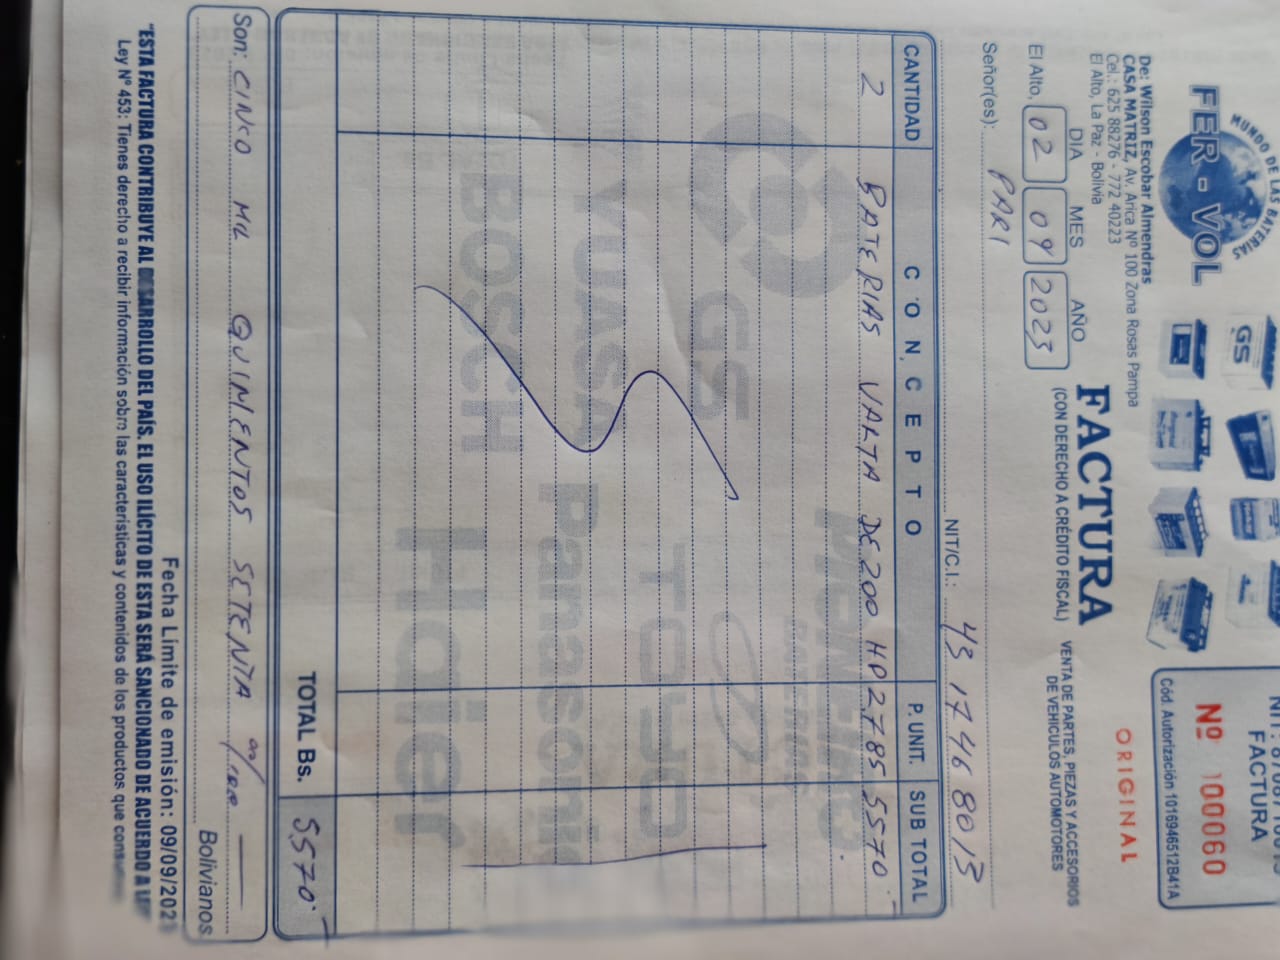 MUNDO DE LAS BATERIAS
FER - VOL
GS
FACTURA
Nº 100060
Cód. Autorización 1016946512B41A
ORIGINAL
De: Wilson Escobar Almendras
CASA MATRIZ, Av. Arica Nº 100 Zona Rosas Pampa
Cel.: 625 88276 - 772 40223
El Alto, La Paz - Bolivia
FACTURA
(CON DERECHO A CRÉDITO FISCAL)
VENTA DE PARTES, PIEZAS Y ACCESORIOS
DE VEHICULOS AUTOMOTORES
DIA MES AÑO
El Alto, 02 09 2023
Señor(es): PARI
NIT/C.I.: 4317468013
CANTIDAD CONCEPTO P. UNIT. SUB TOTAL
2 BATERIAS VALTA DE 200 HP 2785 5570
PIONEIRO
BATERIAS
GS
TOYO
YUASA
Panasonic
BOSCH
Haier
TOTAL Bs. 5570
Son: CINCO MIL QUIMENTOS SETENTA 00/100
Bolivianos
Fecha Límite de emisión: 09/09/2023
"ESTA FACTURA CONTRIBUYE AL DESARROLLO DEL PAÍS. EL USO ILÍCITO DE ESTA SERÁ SANCIONADO DE ACUERDO A
Ley Nº 453: Tienes derecho a recibir información sobre las características y contenidos de los productos que